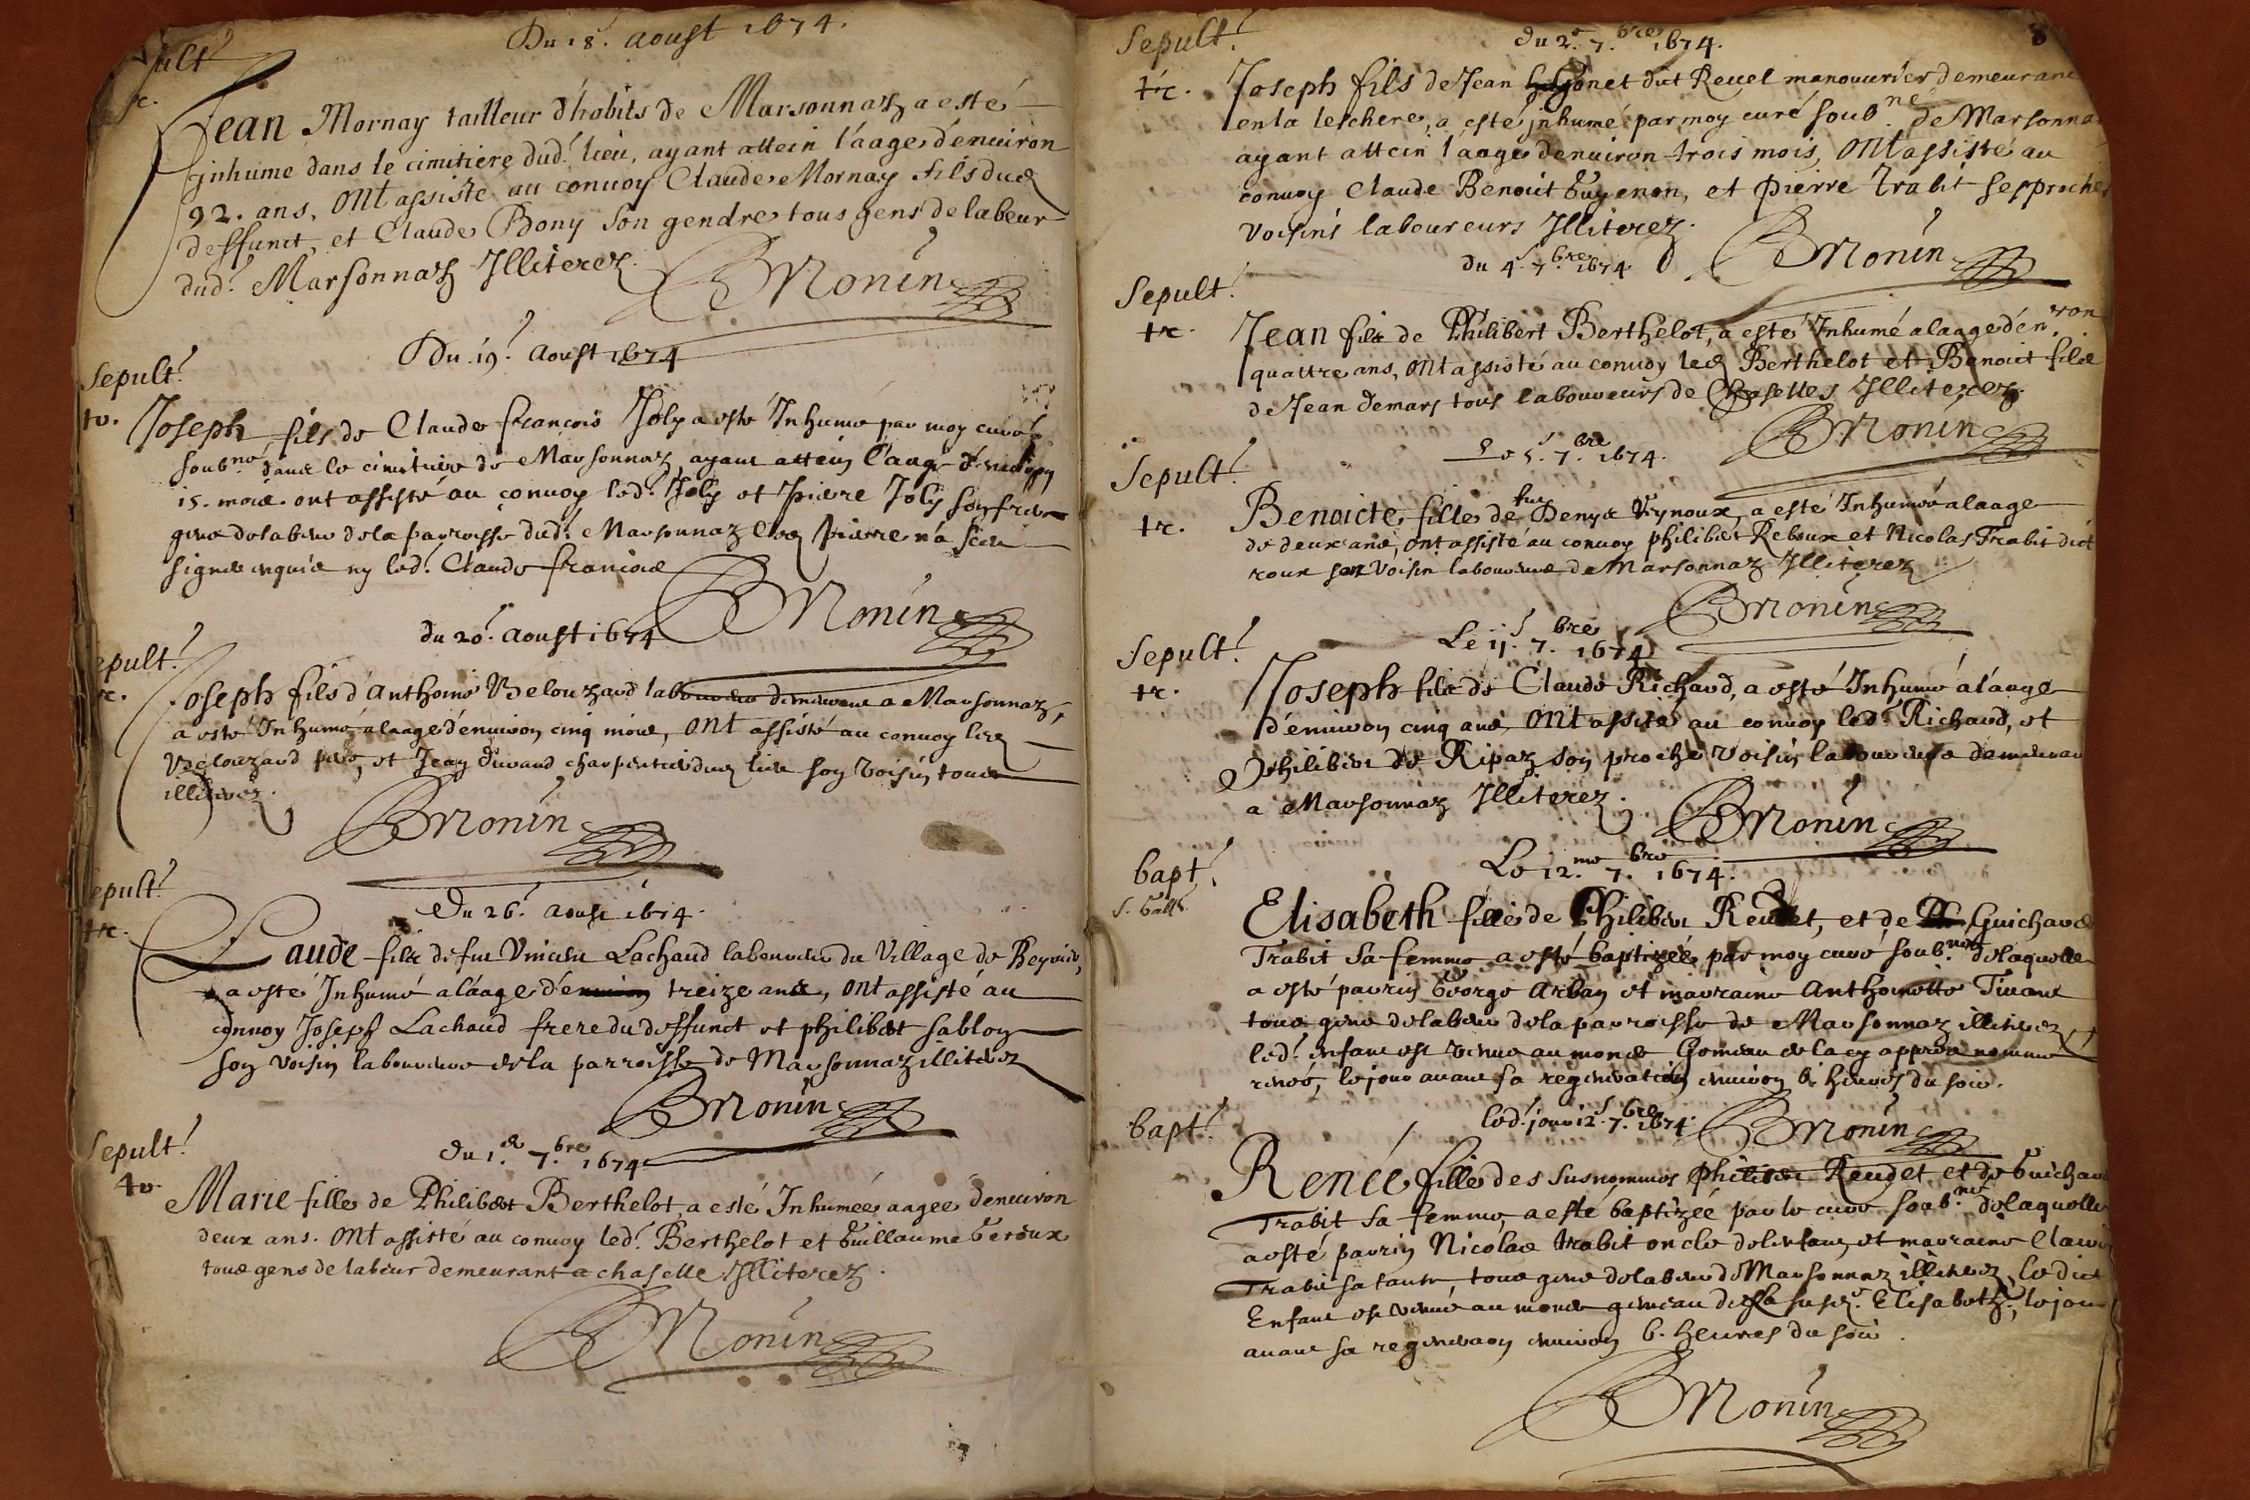 Du 18. aoust 1674.
Sepult.
Jean Mornay tailleur d'habits de Marsonnaz a esté
inhumé dans le cimitiere dud. lieu, ayant attein l'aage d'enuiron
92. ans, ont assisté au conuoy Claude Mornay fils dud
deffunct, et Claude Bony son gendre tous gens de labeur
dud. Marsonnaz Illiterez.
BMonin
Du 19. aoust 1674
Sepult.
tr.
Joseph fils de Claude francois Joly a esté Inhumé par moy curé
soub.né dans le cimitiere de Marsonnaz, ayant attein l'aage d'enuiron
15. mois. ont assisté au conuoy led. Joly et pierre Joly son frere
gens de labeur de la parroisse dud. Marsonnaz pierre n'a sceu
signer enquis ny led. Claude francois
BMonin
du 20. aoust 1674
Sepult.
tr.
Joseph fils d'Anthoine Velouzard laboureur demeurant a Marsonnaz,
a esté Inhumé a laage d'enuiron cinq mois, ont assisté au conuoy led
Velouzard pere, et Jean Durand charpentier dud lieu son voisin, tous
illiterez.
BMonin
Du 26. aoust 1674.
Sepult.
tr.
Laude fils de fut Vincent Lachaud laboureur du Village de
a esté Inhumé a l'aage d'enuiron treize ans, ont assisté au
conuoy Joseph Lachaud frere du deffunct et philibert sablon
son voisin laboureurs de la parroisse de Marsonnaz illiterez
BMonin
du 1.er 7.bre 1674.
Sepult.
tr.
Marie fille de Philibert Berthelot, a esté Inhumée aagée d'enuiron
deux ans. ont assisté au conuoy led. Berthelot et Guillaume Geroux
tous gens de labeur demeurant a chaselle Illiterez.
BMonin
8
Sepult.
du 2.e 7.bre 1674.
tr.
Joseph fils de Jean Gonet dit Reuel manouurier demeurant
en la leschere, a esté inhumé par moy curé soub.né de Marsonna
ayant attein l'aage denuiron trois mois, ont assisté au
conuoy Claude Benoit Guyenon, et pierre Trabit ses proches
voisins laboureurs Illiterez.
BMonin
du 4. 7.bre 1674.
Sepult.
tr.
Jean fils de Philibert Berthelot, a esté Inhumé a laage d'en.viron
quattre ans, ont assisté au conuoy led Berthelot et Benoict fils
de Jean demars tous laboureurs de Chaselles Illiterez.
BMonin
Le 5. 7.bre 1674.
Sepult.
tr.
Benoicte fille de fut Denys Veynoux, a esté Inhumée a laage
de deux ans, ont assisté au conuoy philibert Reboux et Nicolas Trabit dict
roux son voisin laboureurs de Marsonnaz Illiterez
BMonin
Le 11. 7.bre 1674
Sepult.
tr.
Joseph fils de Claude Richard, a esté Inhumé a l'aage
d'enuiron cinq ans ont assisté au conuoy led. Richard, et
Philibert de Ripaz son proche voisin laboureurs demeurant
a Marsonnaz Illiterez.
BMonin
Le 12.me 7.bre 1674.
bapt.
Elisabeth fille de Philibert Reudet, et de Guicharde
Trabit sa femme a esté baptizée par moy curé soub.né de laquelle
a esté parrin George Arban et marraine Anthoinette Tirant
tous gens de labeur de la parroisse de Marsonnaz illiterez,
led. enfant est venue au monde Gemeau de la cy apprès nommée
renée, le jour auant sa regeneration enuiron 6 heures du soir.
BMonin
led. jour 12. 7.bre 1674.
bapt.
Renée fille des susnommés Philibert Reudet et de Guichard
Trabit sa femme, a esté baptizée par le curé soub.né de laquelle
a esté parrin Nicolas trabit oncle de l'enfant, et marraine Claudi
Trabit sa tante, tous gens de labeur de Marsonnaz illiterez, le dict
Enfant est venue au monde gemeau de la susd. Elisabeth, le jour
auant sa regeneraon enuiron 6. heures du soir.
BMonin